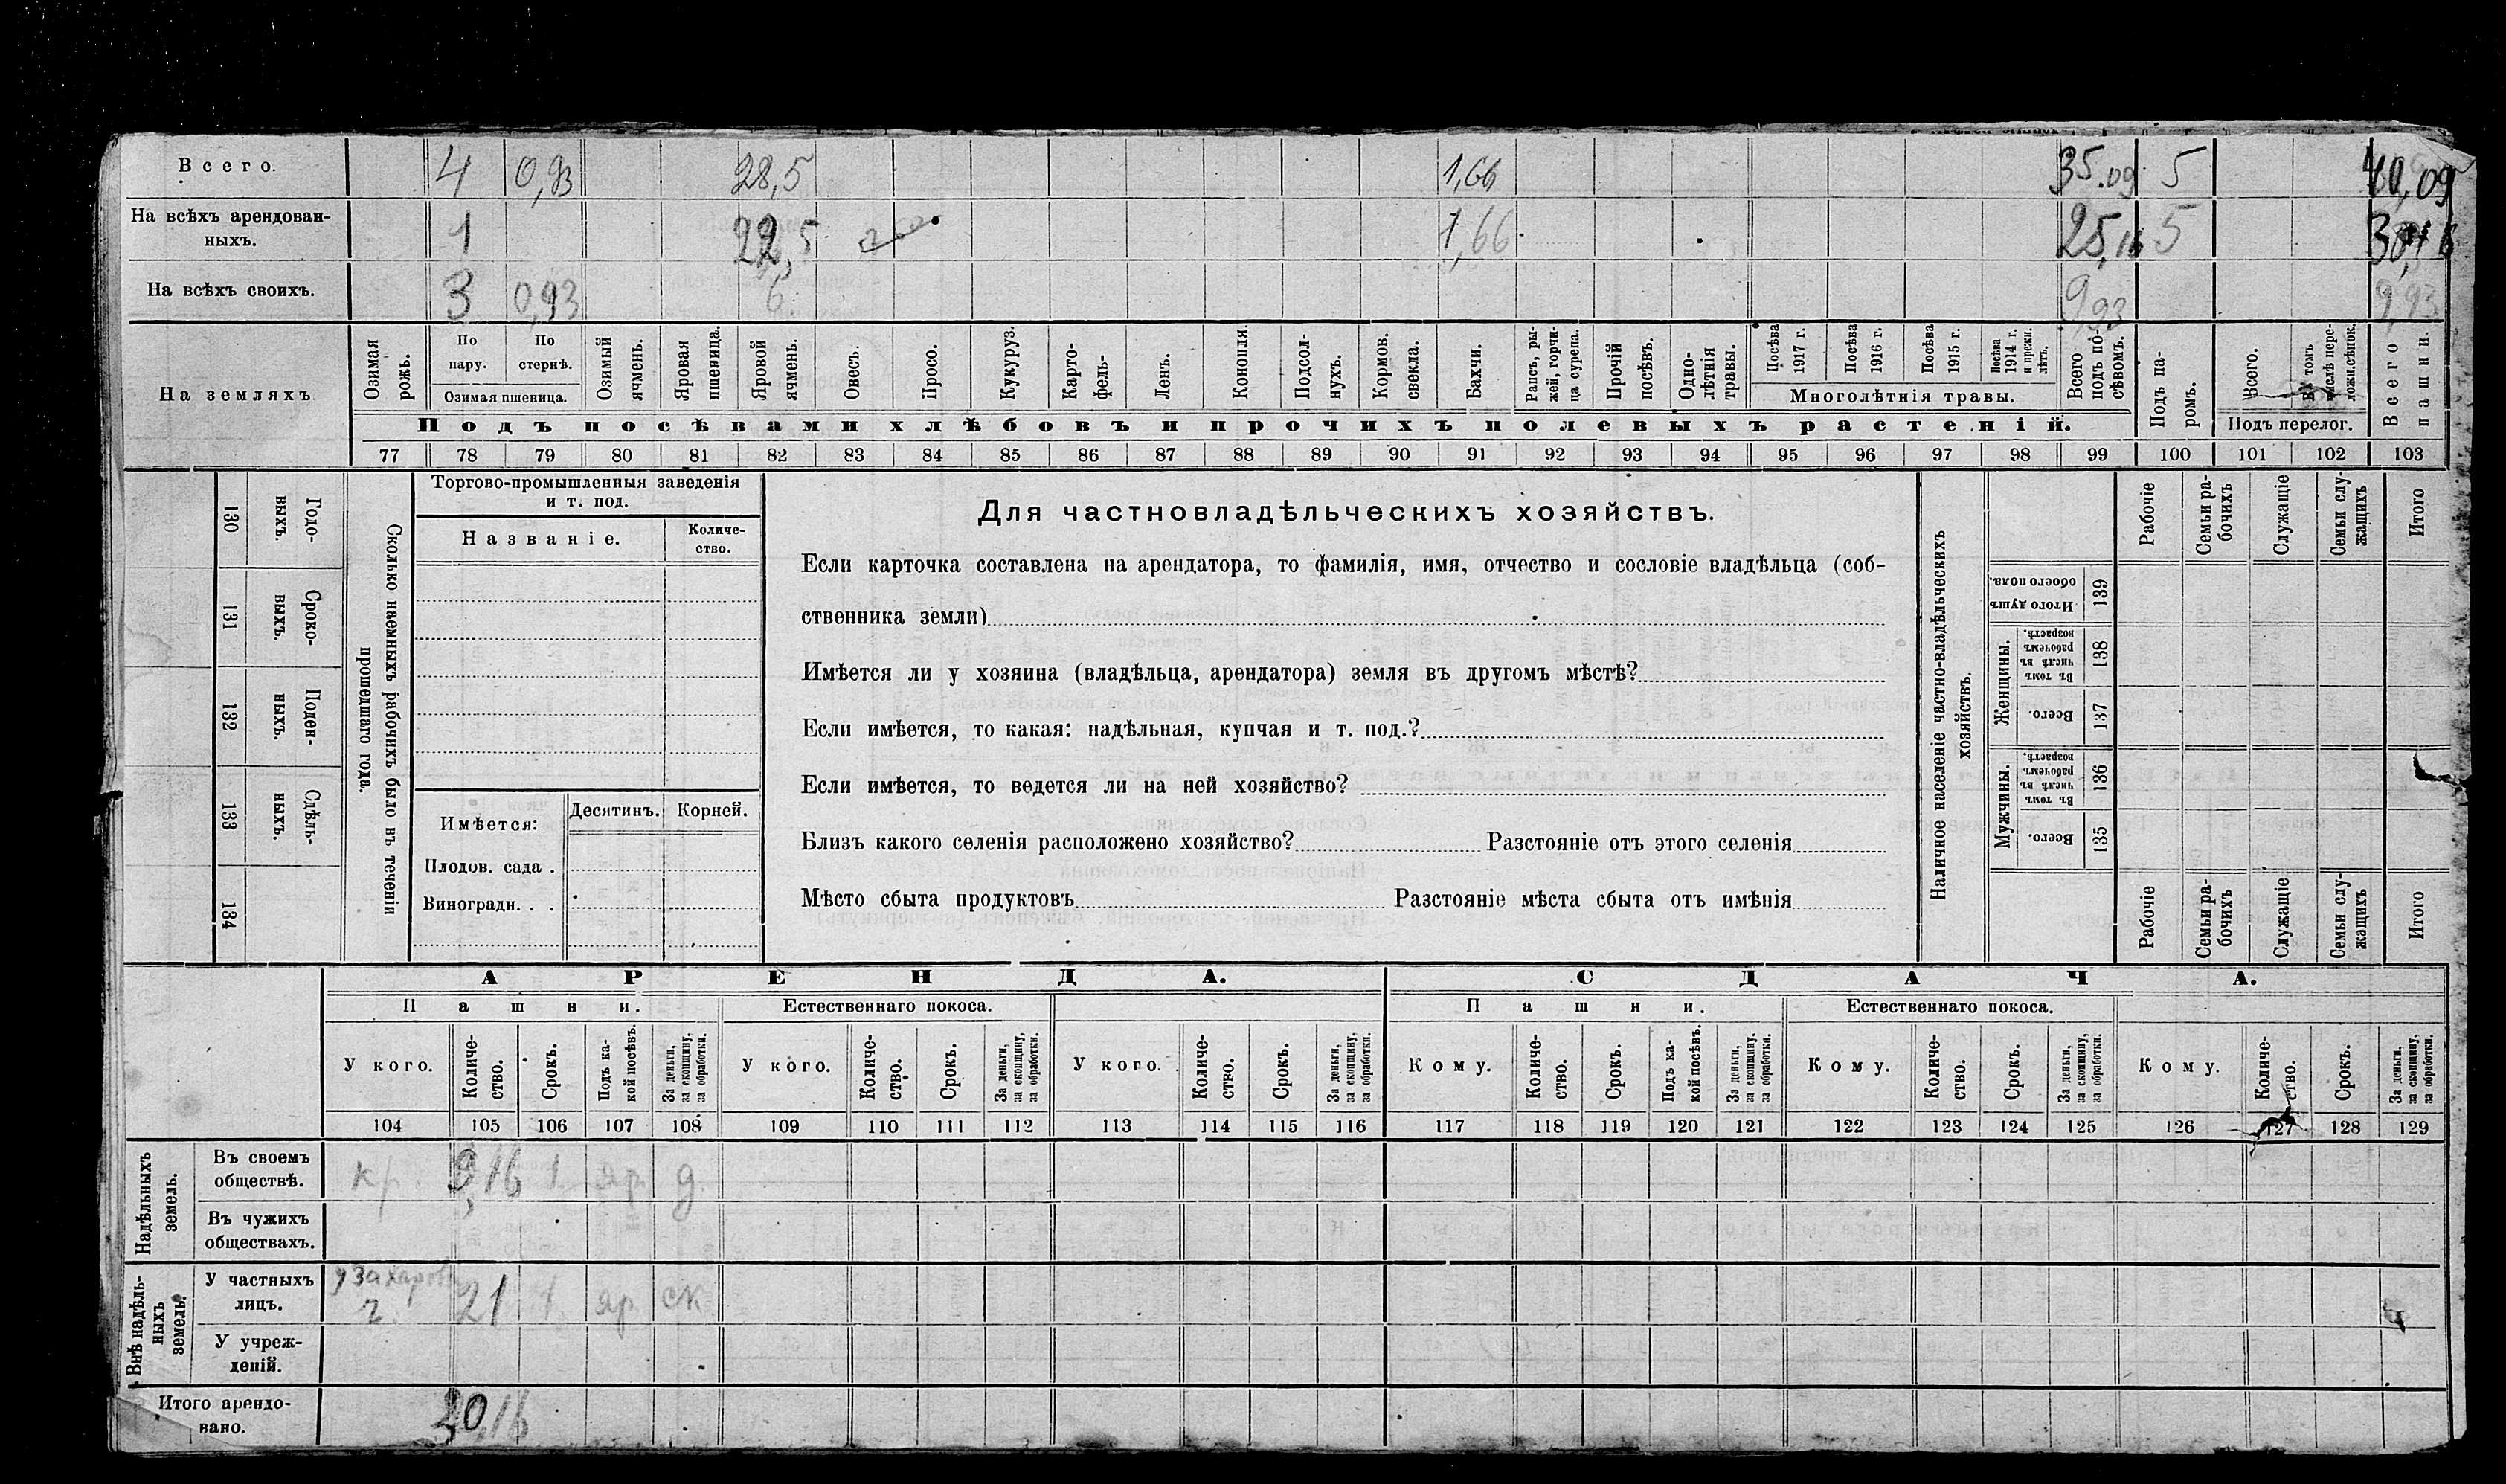 Всего. 4 0,93 28,5 1,66 35.09 5 40,09
На всѣхъ арендован-
ныхъ. 1 22,5 1,66 25,16 5 30,16
На всѣхъ своихъ. 3 0,93 6 9,93 9,93
На земляхъ
Озимая
рожь.
По
пару.
По
стернѣ.
Озимая пшеница.
Озимый
ячмень.
Яровая
пшеница.
Яровой
ячмень.
Овесъ.
Просо.
Кукуруз.
Карто-
фель-
Ленъ.
Конопля.
Подсол-
нухъ.
Кормов.
свекла.
Бахчи.
Рапсъ, ры-
жей, горчи-
ца сурепа.
Прочій
посѣвъ.
Одно-
лѣтнія
травы.
Посѣва
1917 г.
Посѣва
1916 г.
Посѣва
1915 г.
Посѣва
1914 г.
и прежн.
лѣтъ.
Многолѣтнія травы.
Всего
подъ по-
сѣвомъ.
Подъ па-
ромъ.
Всего.
В томъ
числѣ пере-
ложн.сѣнок.
Подъ перелог.
Всего
пашни.
Подъ посѣвами хлѣбовъ и прочихъ полевыхъ растеній.
77 78 79 80 81 82 83 84 85 86 87 88 89 90 91 92 93 94 95 96 97 98 99 100 101 102 103
130 Годо-
ныхъ.
131 Сроко-
выхъ.
132 Поден-
ныхъ.
133 Сдѣль-
ныхъ.
134
Сколько наемныхъ рабочихъ было въ теченіи
прошедшаго года.
Торгово-промышленныя заведенія
и т. под.
Названіе.
Количе-
ство.
Имѣется:
Десятинъ. Корней.
Плодов. сада .
Виноградн. . .
Для частновладѣльческихъ хозяйствъ.
Если карточка составлена на арендатора, то фамилія, имя, отчество и сословіе владѣльца (соб-
ственника земли)
Имѣется ли у хозяина (владѣльца, арендатора) земля въ другомъ мѣстѣ?
Если имѣется, то какая: надѣльная, купчая и т. под.?
Если имѣется, то ведется ли на ней хозяйство?
Близъ какого селенія расположено хозяйство? Разстояніе отъ этого селенія
Мѣсто сбыта продуктовъ Разстояніе мѣста сбыта отъ имѣнія
Наличное населеніе частно-владѣльческихъ
хозяйствъ.
Рабочіе
Семьи ра-
бочихъ
Служащіе
Семьи слу-
жащихъ
Итого
Итого душъ
обоего пола.
139
Женщины.
Въ томъ
числѣ въ
рабочемъ
возрастѣ.
138
Всего.
137
Мужчины.
Въ томъ
числѣ въ
рабочемъ
возрастѣ.
136
Всего.
135
Рабочіе
Семьи ра-
бочихъ
Служащіе
Семьи слу-
жащихъ
Итого
АРЕНДА. СДАЧА.
Пашни. Естественнаго покоса. Пашни. Естественнаго покоса.
У кого.
Количе-
ство.
Срокъ.
Подъ ка-
кой посѣвъ.
За деньги,
за скопщину,
за обработки.
У кого.
Количе-
ство.
Срокъ.
За деньги,
за скопщину,
за обработки.
У кого.
Количе-
ство.
Срокъ.
За деньги,
за скопщину,
за обработки.
Кому.
Количе-
ство.
Срокъ.
Подъ ка-
кой посѣвъ.
За деньги,
за скопщину,
за обработки.
Кому.
Количе-
ство.
Срокъ.
За деньги,
за скопщину,
за обработки.
Кому.
Количе-
ство.
Срокъ.
За деньги,
за скопщину,
за обработки.
104 105 106 107 108 109 110 111 112 113 114 115 116 117 118 119 120 121 122 123 124 125 126 127 128 129
Надѣльныхъ
земель.
Въ своемъ
обществѣ. кр. 9,16 1. яр. д.
Въ чужихъ
обществахъ.
Внѣ надѣль-
ныхъ
земель.
У частныхъ
лицъ. 21 1. яр. ск
У учреж-
деній.
Итого арендо-
вано. 30,16